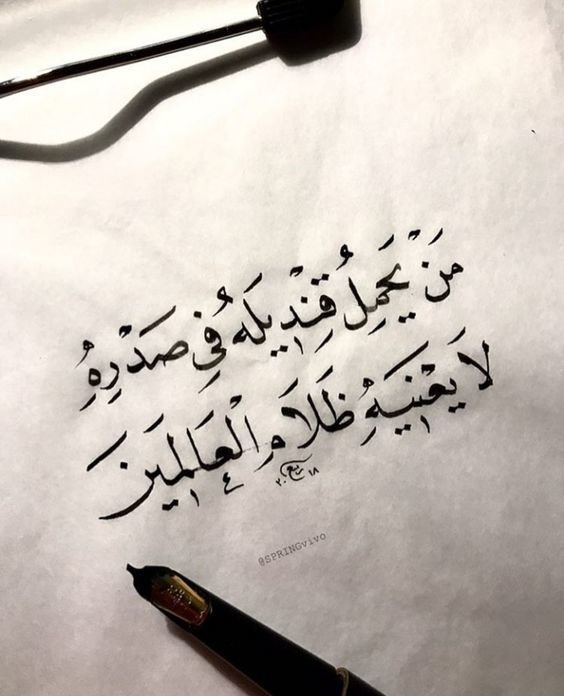 مَنْ يَحْمِلُ قِنْدِيلَهُ فِي صَدْرِهِ
لَا يَعْنِيهِ ظَلَامَ الْعَالَمِينَ
ربيع
٢٠ ١٨
@SPRINGvivo